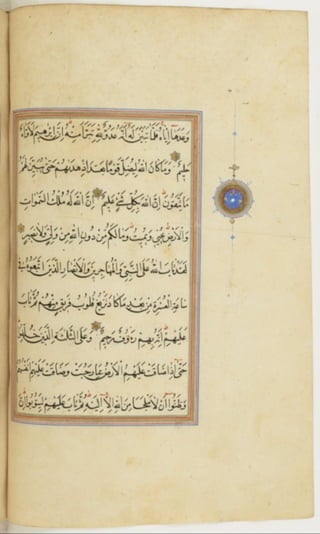 وَعَدَهَا إِيَّاهُ فَلَمَّا تَبَيَّنَ لَهُ أَنَّهُ عَدُوٌّ لِلَّهِ تَبَرَّأَ مِنْهُ إِنَّ إِبْرٰهِيمَ لَأَوَّاهٌ
حَلِيمٌ وَمَا كَانَ اللَّهُ لِيُضِلَّ قَوْمًا بَعْدَ إِذْ هَدٰيهُمْ حَتَّى يُبَيِّنَ لَهُمْ
مَا يَتَّقُونَ إِنَّ اللَّهَ بِكُلِّ شَيْءٍ عَلِيمٌ إِنَّ اللَّهَ لَهُ مُلْكُ السَّمٰوَاتِ
وَالْأَرْضِ يُحْيِي وَيُمِيتُ وَمَا لَكُمْ مِنْ دُونِ اللَّهِ مِنْ وَلِيٍّ وَلَا نَصِيرٍ
لَقَدْ تَابَ اللَّهُ عَلَى النَّبِيِّ وَالْمُهَاجِرِينَ وَالْأَنْصَارِ الَّذِينَ اتَّبَعُوهُ فِي
سَاعَةِ الْعُسْرَةِ مِنْ بَعْدِ مَا كَادَ يَزِيغُ قُلُوبُ فَرِيقٍ مِنْهُمْ ثُمَّ تَابَ
عَلَيْهِمْ إِنَّهُ بِهِمْ رَؤُفٌ رَحِيمٌ وَعَلَى الثَّلٰثَةِ الَّذِينَ خُلِّفُوا
حَتَّى إِذَا ضَاقَتْ عَلَيْهِمُ الْأَرْضُ بِمَا رَحُبَتْ وَضَاقَتْ عَلَيْهِمْ أَنْفُسُهُمْ
وَظَنُّوا أَنْ لَا مَلْجَأَ مِنَ اللَّهِ إِلَّا إِلَيْهِ ثُمَّ تَابَ عَلَيْهِمْ لِيَتُوبُوا إِنَّ